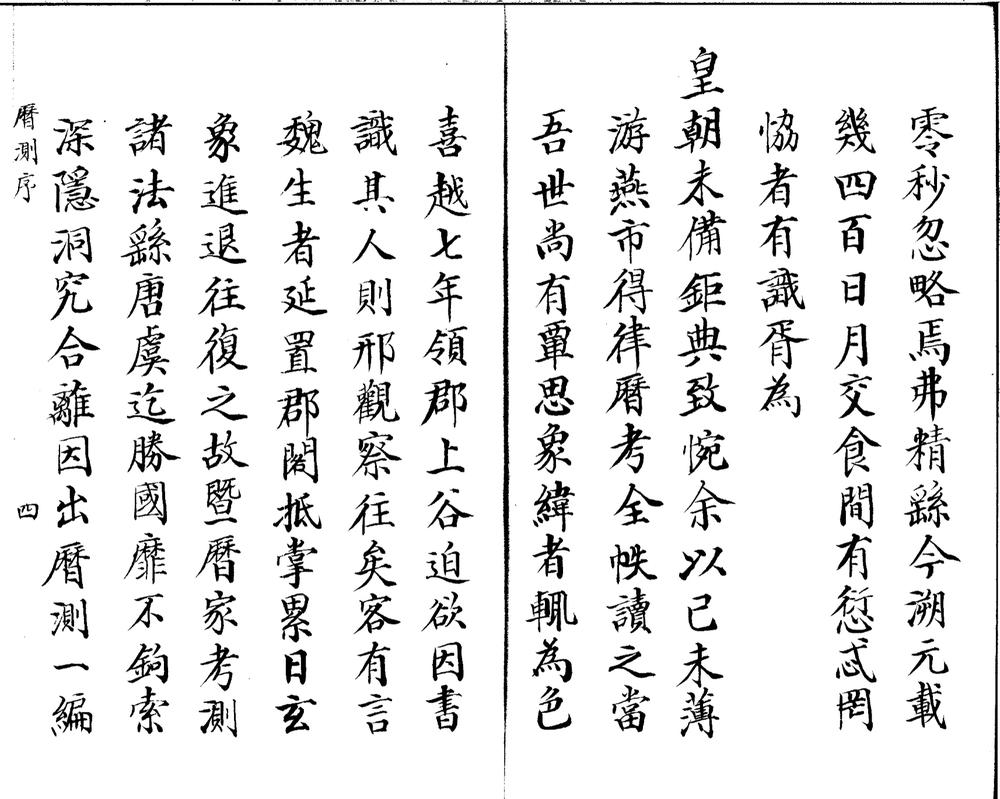 零秒忽略焉弗精繇今溯元載
幾四百日月交食間有愆忒罔
恊者有識胥為
皇朝未備鉅典致惋余以已未薄
游燕市得律曆考全帙讀之當
吾世尚有覃思象緯者輒為色
喜越七年領郡上谷迫欲因書
識其人則邢觀察往矣客有言
魏生者延置郡閣抵掌累日玄
象進退往復之故暨曆家考測
諸法繇唐虞迄勝國靡不鉤索
深隱洞究合離因出曆測一編
曆測序
四